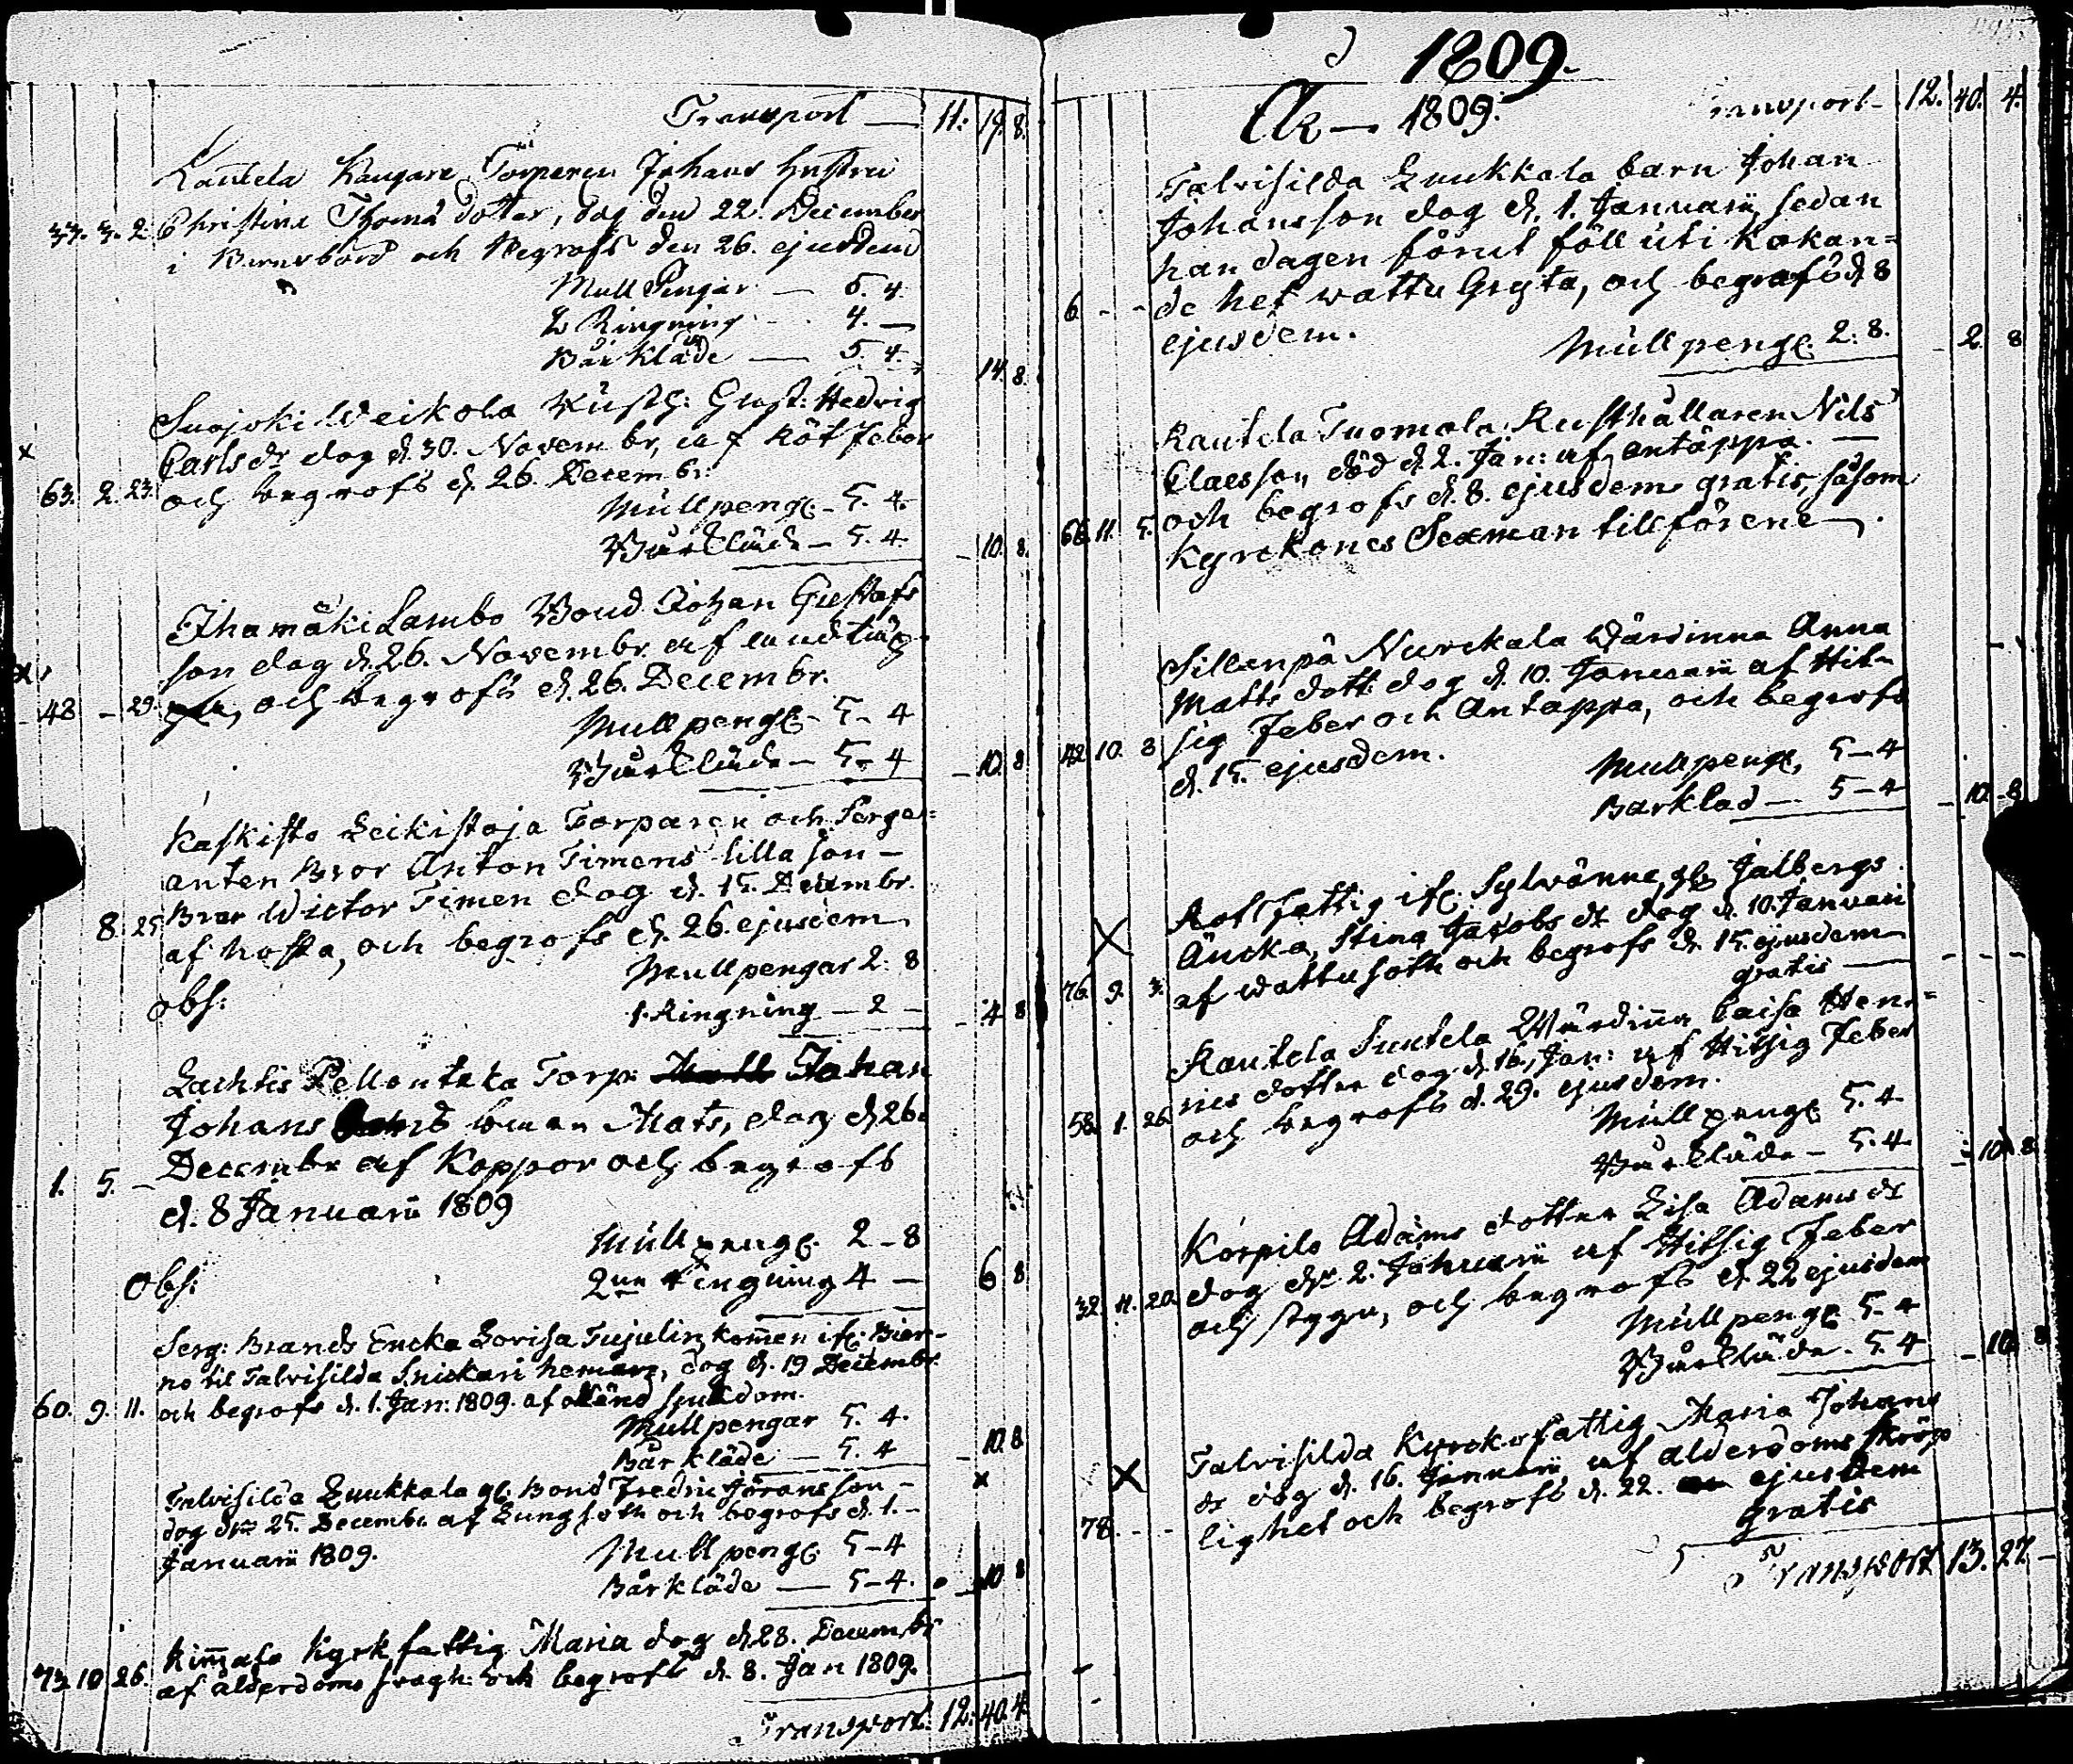 Transport — 11. 19. 8.
Rautela Kangare Torparen Johans hustru
33. 3. 2. Christina Thomæ dotter, dog den 22. December
i Barnsbörd och Begrofs den 26. ejusdem
Mull Pengar — 5. 4.
2 Ringning — 4. —
Bår Kläde — 5. 4. 14. 8.
Suojoki Weikola Rusth: Gust: Hedvig
x
Carlsdr dog d. 30. Novembr, af Röt feber
63. 2. 23. och begrofs d. 26. Decembr.
Mullpeng: 5. 4.
Bårkläde — 5. 4. — 10. 8.
Ihamäki Lambo Bond Johan Gustafs
son dog d. 26. Novembr. af
x
48 — 29. och begrofs d. 26. Decembr.
Mullpeng: 5 - 4
Bårkläde — 5 - 4 — 10. 8
Kaskisto Leikistoja Torparen och Serge=
anten Bror Anton Timens lilla son —
8. 25 Bror Wictor Timen dog d. 15. Decembr.
af hosta, och begrofs d. 26. ejusdem
Mullpengar 2: 8
obs: 1. Ringning — 2 — — 4 8
Lachtis Pellontaka Torp: Johan
Johans barn Mats, dog d. 26.
1. 5. — Decembr af Koppor och begrofs
d. 8 Januarii 1809
Mullpeng: 2 - 8
Obs: 2ne Ringning 4 — 6 8
Serg: Brands Encka Lovisa Tujulin, kommen ifr: Bier-
no til Talvisilda Snickari hemman, dog d. 19 Decembr.
60. 9. 11. och begrofs d. 1. Jan: 1809. af okänd sjukdom.
Mullpengar 5. 4.
Bår kläde — 5. 4 — 10. 8
x
Talvisilda Luukkala gl: Bond Fredric Göransson —
dog den 25. Decembr. af Lungsoth och begrofs d. 1. —
Januarii 1809.
Mullpeng: 5 - 4
Bårkläde — 5 - 4. — 10 8
Kimmala Kyrkfattig Maria dog d. 28. Decembr
73. 10 26. af ålderdoms och begrofs d. 8. Jan 1809.
Transport: 12. 40. 4
1809.
År — 1809. Transport — 12. 40. 4.
Talvisilda Luukkala barn Johan
Johansson dog d. 1. Januarii, sedan
han dagen förut föll uti kokan=
6 - - de het wattu Gryta, och begrofs d. 8
ejusdem. Mullpeng: 2: 8. — 2. 8
Rautela Tuomola, Rusthållaren Nils
Claesson, död d. 2. Jan: af andtäppa. —
66. 11. 5. och begrofs d. 8. ejusdem gratis, såsom
Kyrckones Sexman tillförene —.
Sillanpä Nurckala Wärdinna Anna
Matts dott: dog d. 10. Januarii af Hit-
42 10. 8 sig Feber och Antäppa, och begrofs
d. 15. ejusdem. Mullpeng: 5 - 4
Barkläd — 5 - 4 — 10. 8
x Rotfattig ifr: Sylvänne, gl: Jalbergs
Äncka, Stina Jacobs dr dog d. 10. Januari
76. 9. 3. af wattusoth och begrofs d. 15. ejusdem
gratis — - - -
Rautela Suutela Wärdinn Caisa Hen=
nes dotter dog d. 16. Jan: af Hitsig Feber
58. 1. 26. och begrofs d. 29. ejusdem.
Mullpeng: 5. 4
Bårkläde — 5. 4 — 10. 8
Korpilo Adams dotter Lisa Adams dr
dog den 2. Januarii af Hitsig Feber
32. 11. 20. och stygn, och begrofs d. 22 ejusdem
Mullpeng: 5 - 4
Bårkläde — 5. 4 — 10. 8
Talvisilda Kyrckofattig Maria Johans
x dr dog d. 16. Januarii af ålderdoms skröp
78. - - lighet och begrofs d. 22. ejusdem
gratis
Transport 13. 27. —